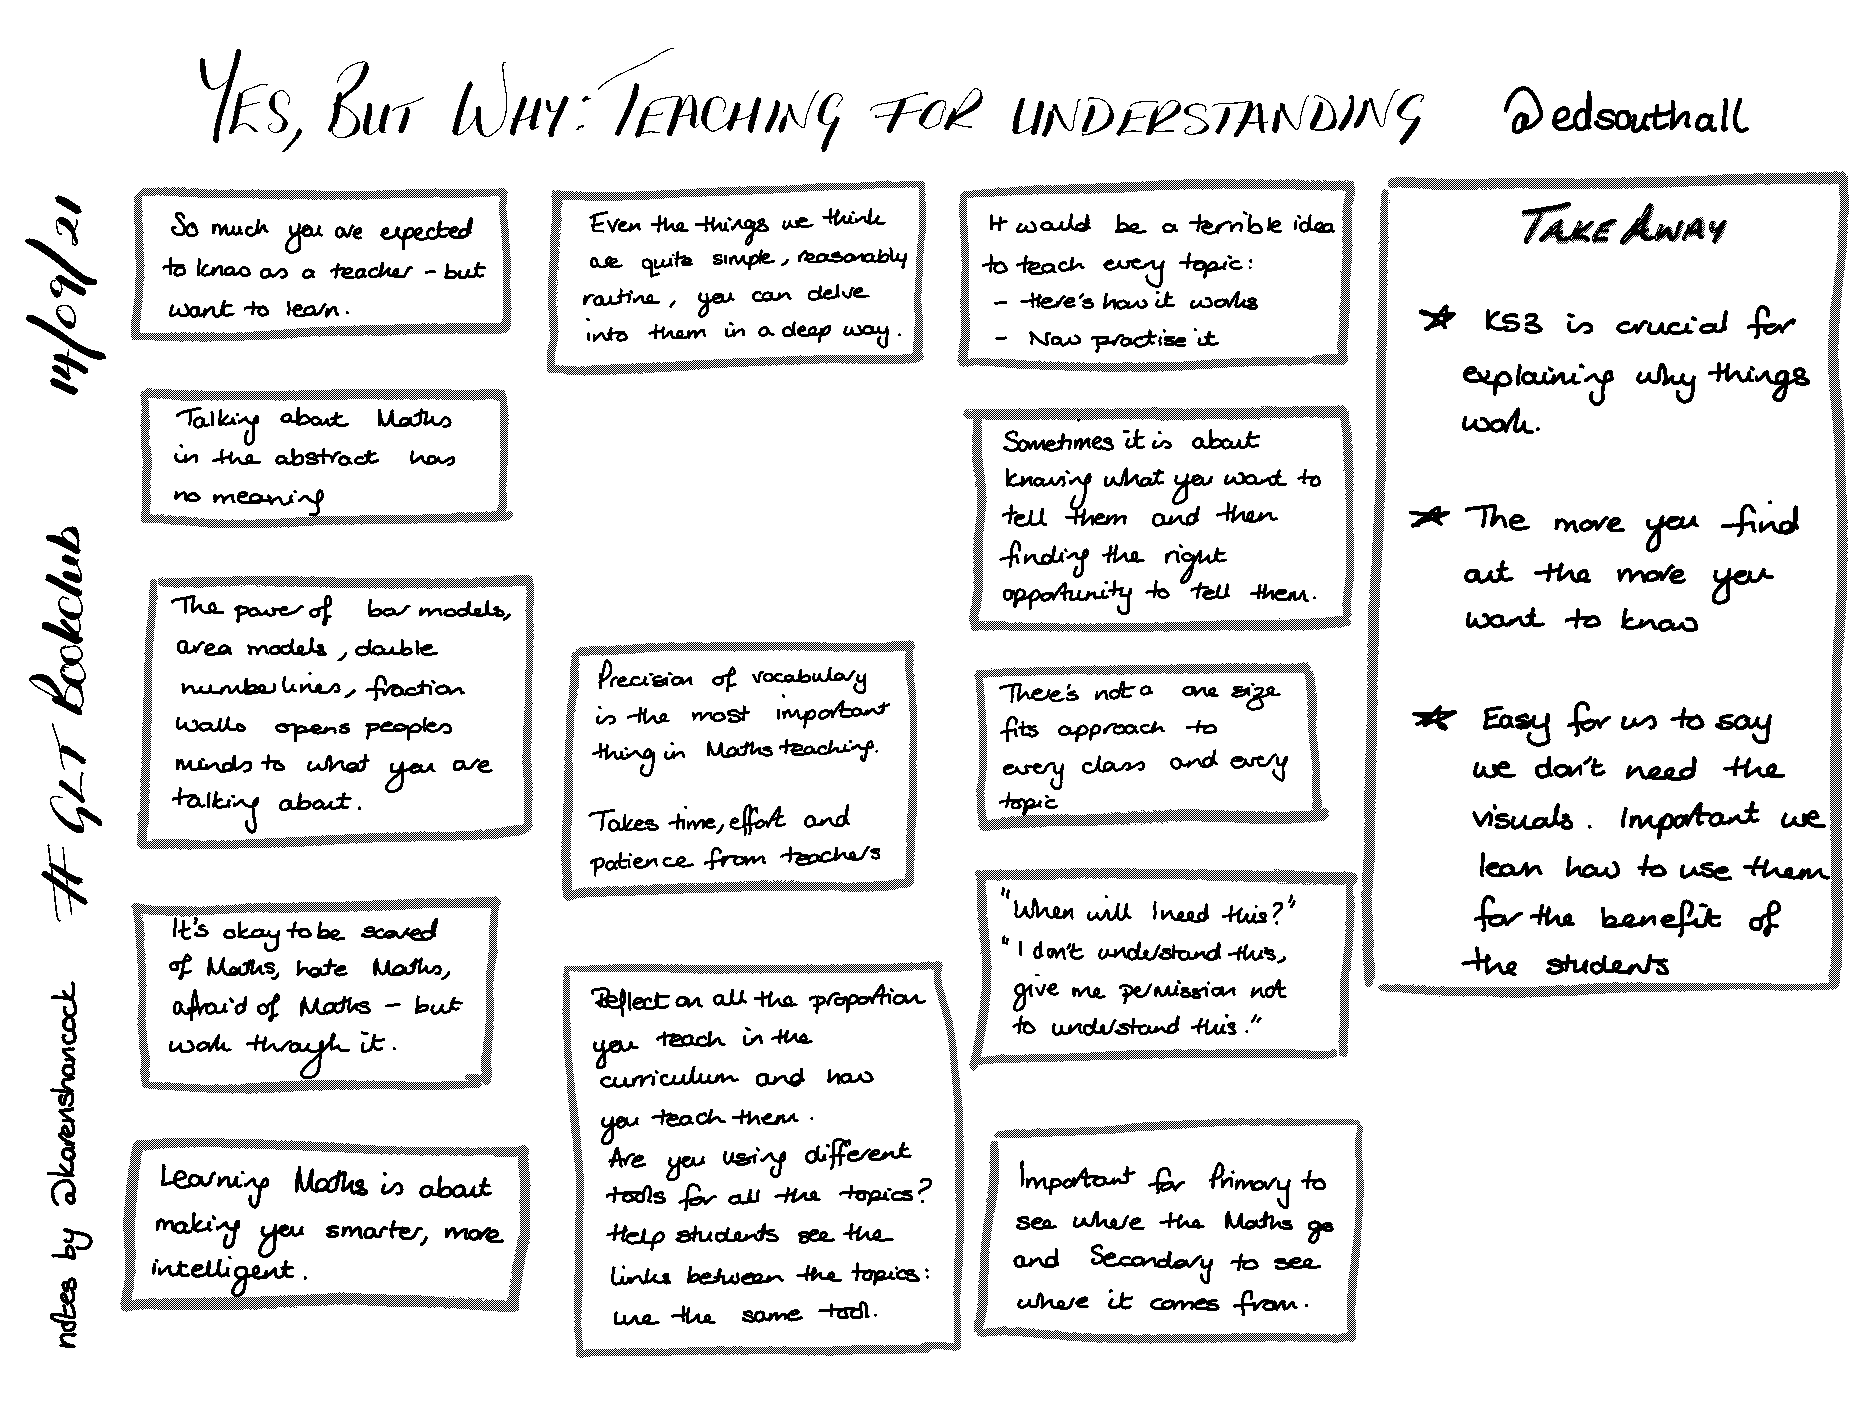 YES, BUT WHY: TEACHING FOR UNDERSTANDING @edsouthall
14/09/21
# GLT Bookclub
notes by @karenshancock
So much you are expected
to know as a teacher - but
want to learn.
Talking about Maths
in the abstract has
no meaning
The power of bar models,
area models, double
numberlines, fraction
walls opens peoples
minds to what you are
talking about.
It's okay to be scared
of Maths, hate Maths,
afraid of Maths - but
work through it.
Learning Maths is about
making you smarter, more
intelligent.
Even the things we think
are quite simple, reasonably
routine, you can delve
into them in a deep way.
Precision of vocabulary
is the most important
thing in Maths teaching.
Takes time, effort and
patience from teachers
Reflect on all the proportion
you teach in the
curriculum and how
you teach them.
Are you using different
tools for all the topics?
Help students see the
links between the topics:
use the same tool.
It would be a terrible idea
to teach every topic:
- Here's how it works
- Now practise it
Sometimes it is about
knowing what you want to
tell them and then
finding the right
opportunity to tell them.
There's not a one size
fits approach to
every class and every
topic
"When will I need this?"
"I don't understand this,
give me permission not
to understand this."
Important for Primary to
see where the Maths go
and Secondary to see
where it comes from.
TAKE AWAY
★ KS3 is crucial for
explaining why things
work.
★ The more you find
out the more you
want to know
★ Easy for us to say
we don't need the
visuals. Important we
learn how to use them
for the benefit of
the students